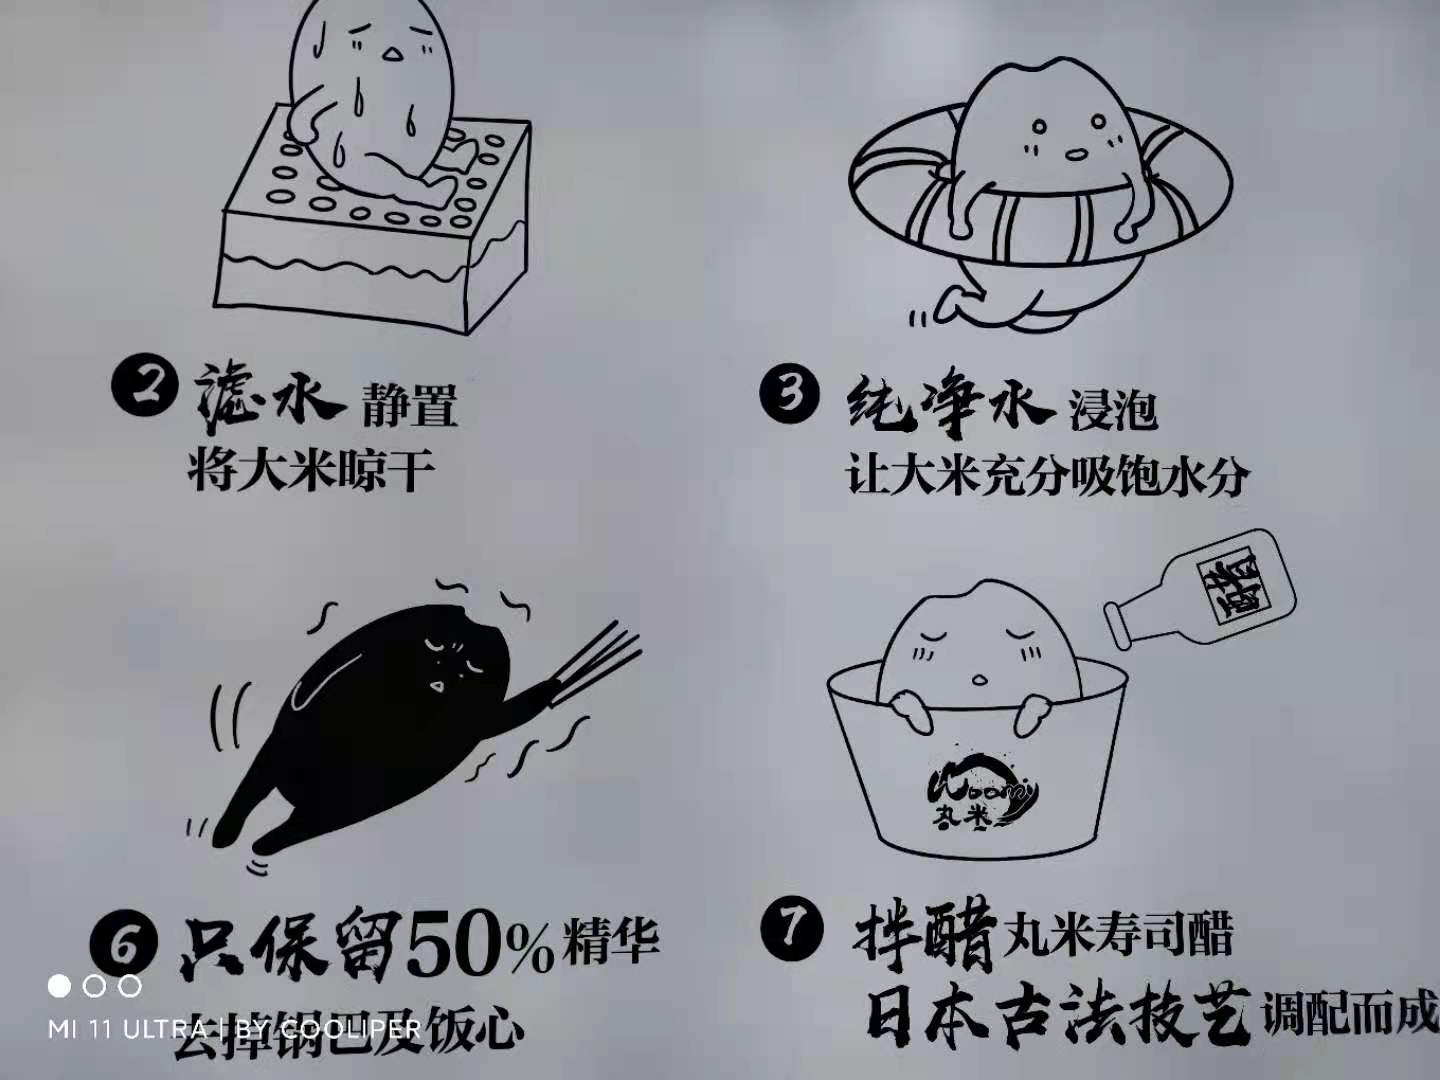 2 滤水 静置
将大米晾干
3 纯净水 浸泡
让大米充分吸饱水分
醋
Woomy
丸米
6 只保留50%精华
去掉锅巴及饭心
7 拌醋 丸米寿司醋
日本古法技艺 调配而成
MI 11 ULTRA | BY COOLIPER